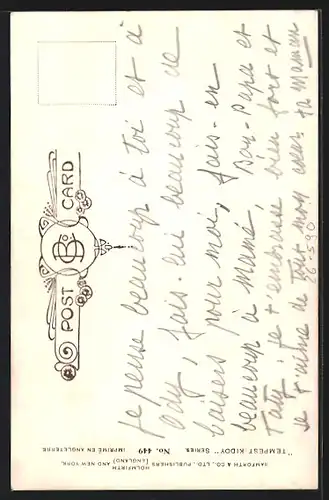 POST CARD
Je pense beaucoup à toi et à
Ody, fais-lui beaucoup de
baisers pour moi, fais-en
beaucoup à mamé Bon-Papa et
Taty, je t'embrasse bien fort et
je t'aime de tout mon cœur ta maman
26-590
BAMFORTH & CO., LTD., PUBLISHERS HOLMFIRTH (ENGLAND) AND NEW YORK.
"TEMPEST KIDDY" SERIES. No. 449 IMPRIMÉ EN ANGLETERRE